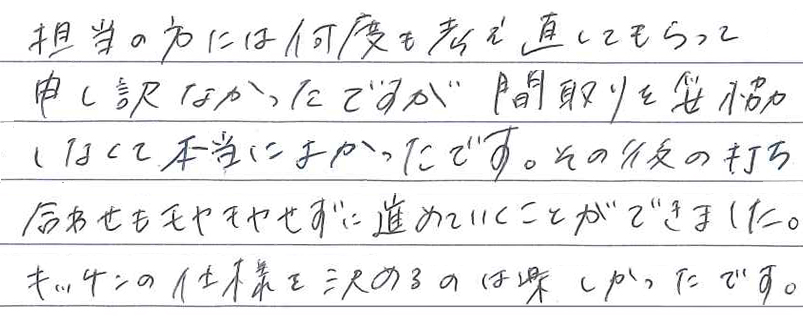 担当の方には何度も考え直してもらって
申し訳なかったですが間取りを妥協
しなくて本当によかったです。その後の打ち
合わせもモヤモヤせずに進めていくことができました。
キッチンの仕様を決めるのは楽しかったです。